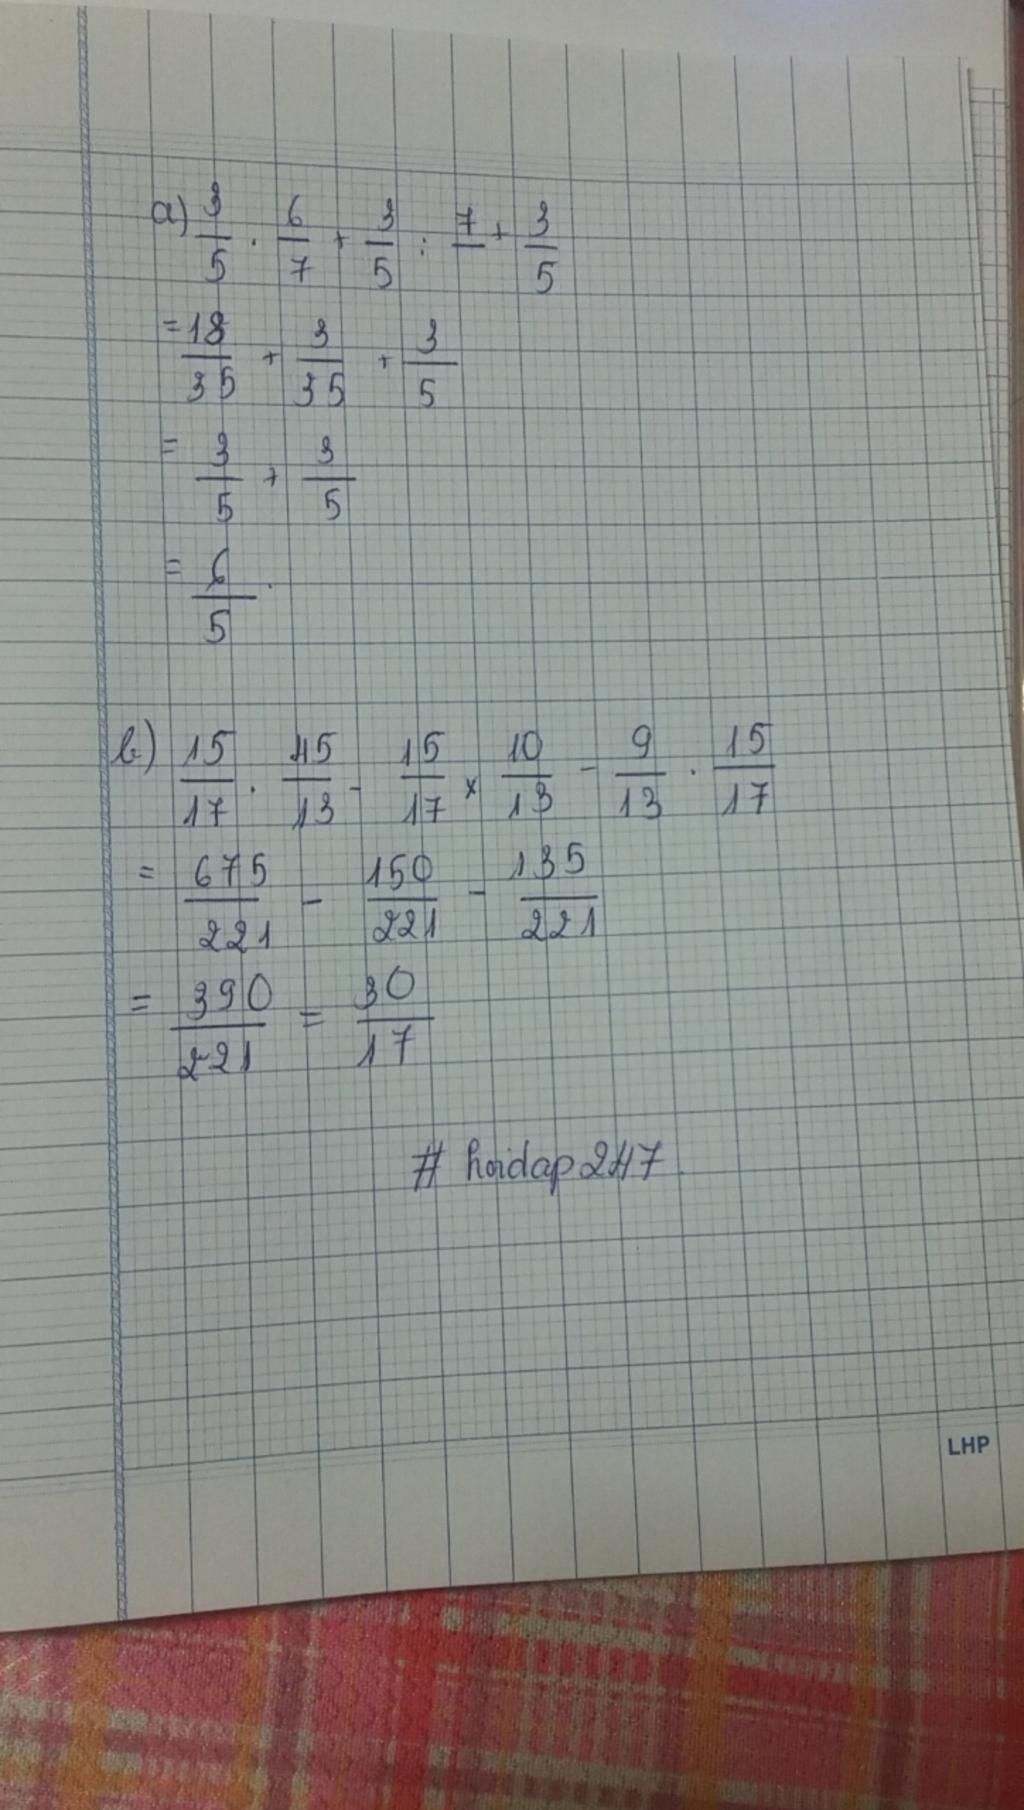 a) 3/5 . 6/7 + 3/5 : 7 + 3/5
= 18/35 + 3/35 + 3/5
= 3/5 + 3/5
= 6/5 .
b) 15/17 . 45/13 - 15/17 x 10/13 - 9/13 . 15/17
= 675/221 - 150/221 - 135/221
= 390/221 = 30/17
# hoidap247
LHP